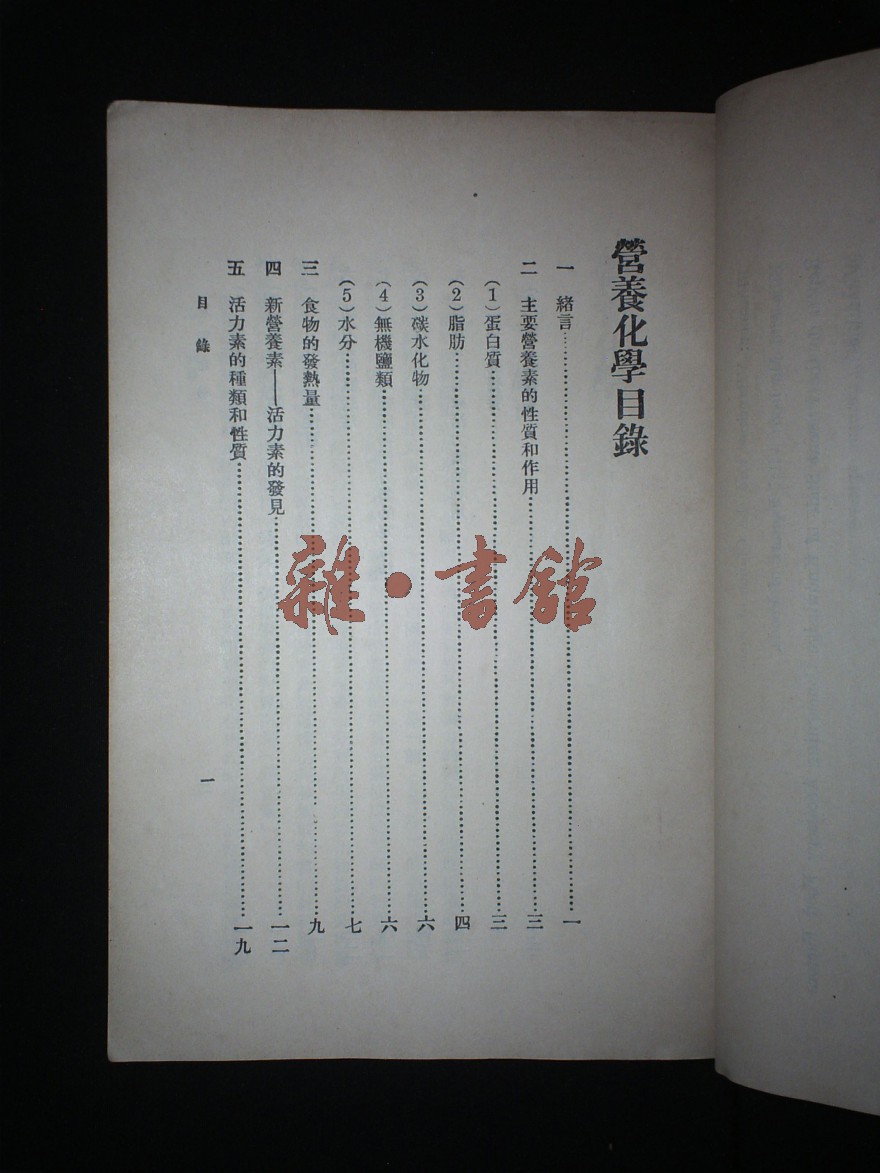 營養化學目錄
一　緒言……一
二　主要營養素的性質和作用……三
(1)蛋白質……三
(2)脂肪……四
(3)碳水化物……六
(4)無機鹽類……六
(5)水分……七
三　食物的發熱量……九
四　新營養素——活力素的發見……一二
五　活力素的種類和性質……一九
目錄
一
雜·書館